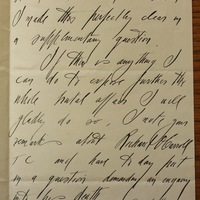 I made this perfectly clear in
a supplementary question.
If there is anything I
can do to expose further the
whole brutal affair I will
gladly do so. I note your
remarks about Richard O'Carroll
T C and have to day put
in a question demanding an inquiry
into his death